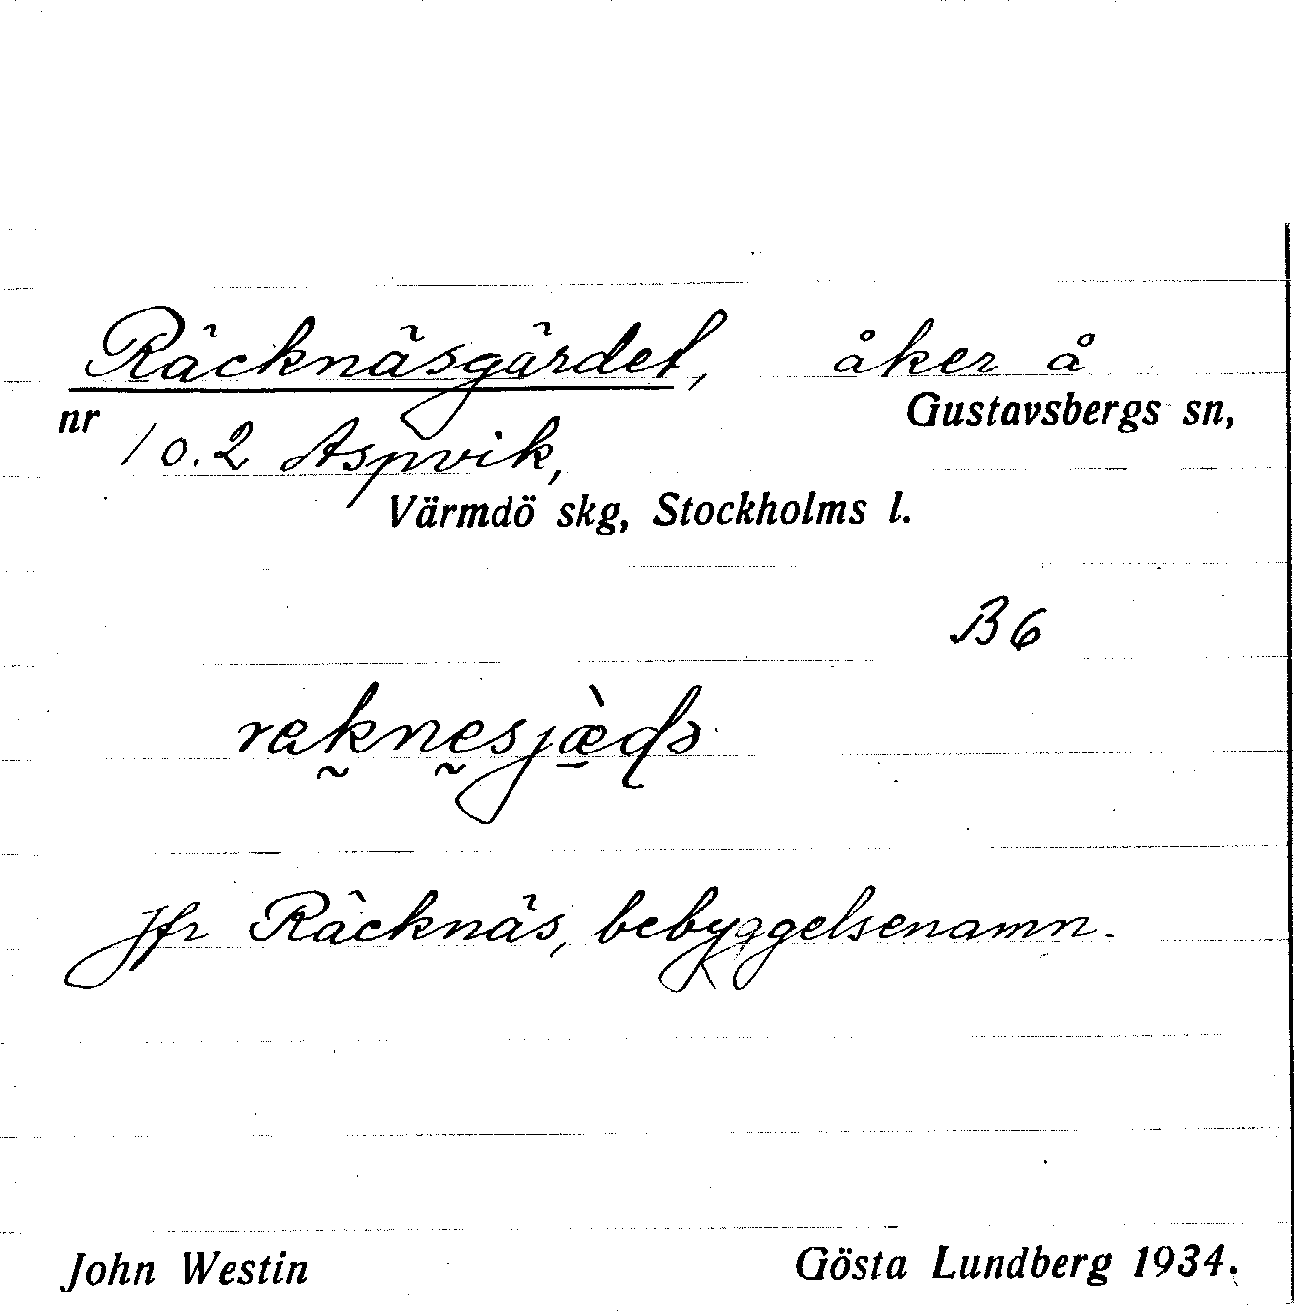 Räcknäsgärdet, åker å
nr Gustavsbergs sn,
1 o. 2 Aspvik,
Värmdö skg, Stockholms l.
B6
Jfr Räcknäs, bebyggelsenamn.
John Westin Gösta Lundberg 1934.